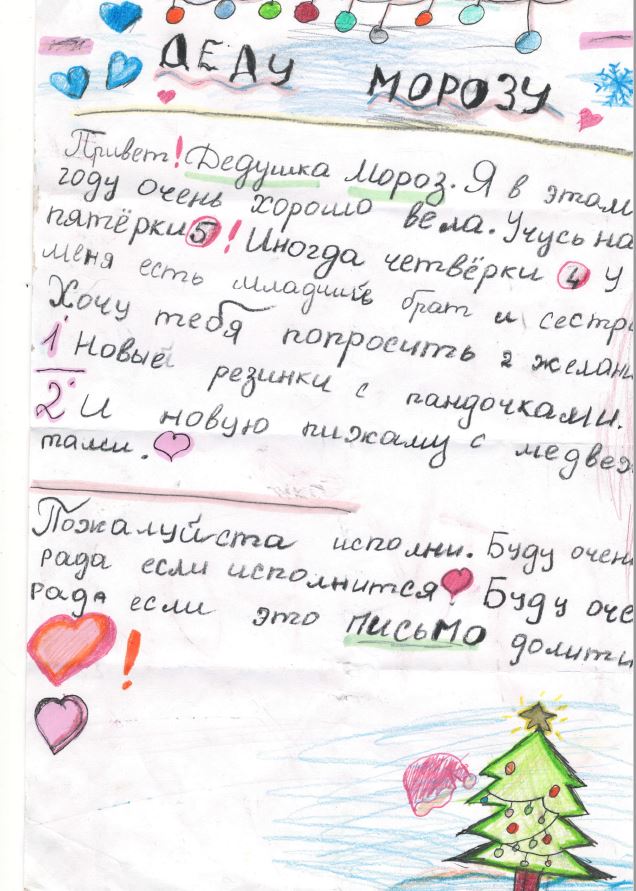 ДЕДУ МОРОЗУ
Привет! Дедушка Мороз. Я в этом
году очень хорошо вела. Учусь на
пятёрки 5! Иногда четвёрки 4 У
меня есть младший брат и сестр
Хочу тебя попросить 2 желани
1 Новые резинки с пандочками.
2 И новую пижаму с медвеж
тами.
Пожалуйста исполни. Буду очен
рада если исполнится Буду оче
рада если это ПИСЬМО долити
!